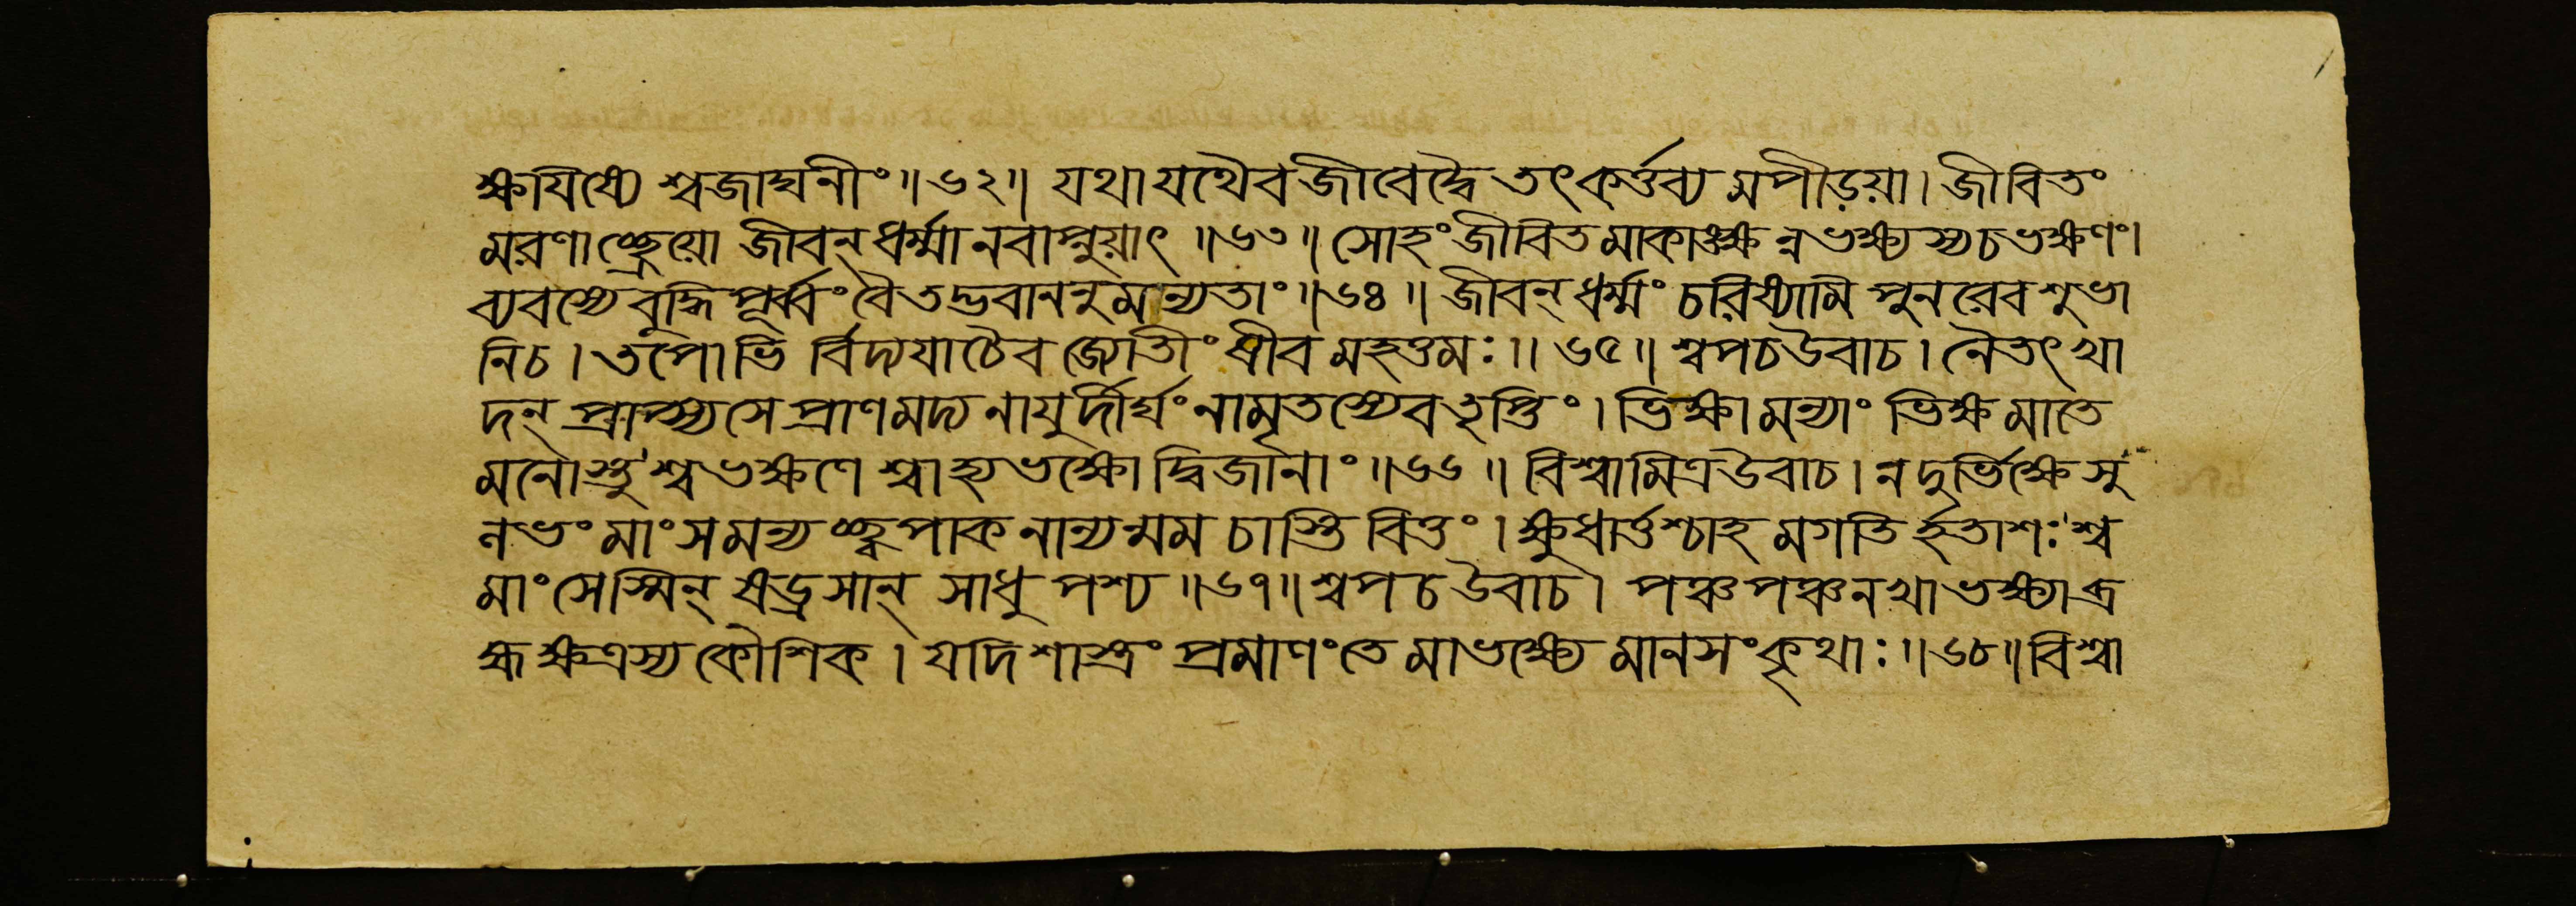 ক্ষযিষ্যে শ্বজাঘনীং॥৬২॥ যথাযথৈবজীবেদ্বৈ তৎকর্ত্তব্য মপীড়য়া। জীবিতং
মরণাচ্ছ্রেয়ো জীবন্ধর্ম্মা নবাপ্নুয়াৎ ॥৬৩॥ সোহংজীবিতমাকাঙ্ক্ষ ন্নভক্ষ্যস্যচভক্ষণং।
ব্যবস্যেবুদ্ধিপূর্ব্বংবৈতদ্ভবাননুমান্যতাং॥৬৪॥ জীবন্ধর্ম্মং চরিষ্যামি পুনরেবশুভা
নিচ। তপোভি র্বিদ্যযাচৈব জ্যোতীংষীব মহত্তমঃ॥ ৬৫॥ শ্বপচউবাচ। নৈতৎখা
দন্ প্রাপ্স্যসে প্রাণমদ্য নাযুর্দীর্ঘং নামৃতস্যেবতৃপ্তিং। ভিক্ষামন্যাং ভিক্ষমাতে
মনোস্তু শ্বভক্ষণে শ্বাহ্যভক্ষো দ্বিজানাং॥৬৬॥ বিশ্বামিত্রউবাচ। নদুর্ভিক্ষেসু
লভং মাংসমন্য চ্ছ্বপাক নান্যন্মম চাস্তি বিত্তং। ক্ষুধার্ত্তশ্চাহ মগতি র্হতাশঃ শ্ব
মাংসেস্মিন্ ষড্রসান্ সাধু পশ্য॥৬৭॥শ্বপচউবাচ। পঞ্চপঞ্চনখাভক্ষ্যাব্র
হ্মক্ষত্রস্য কৌশিক। যদিশাস্ত্রং প্রমাণংতে মাভক্ষ্যে মানসংকৃথাঃ॥৬৮॥বিশ্বা